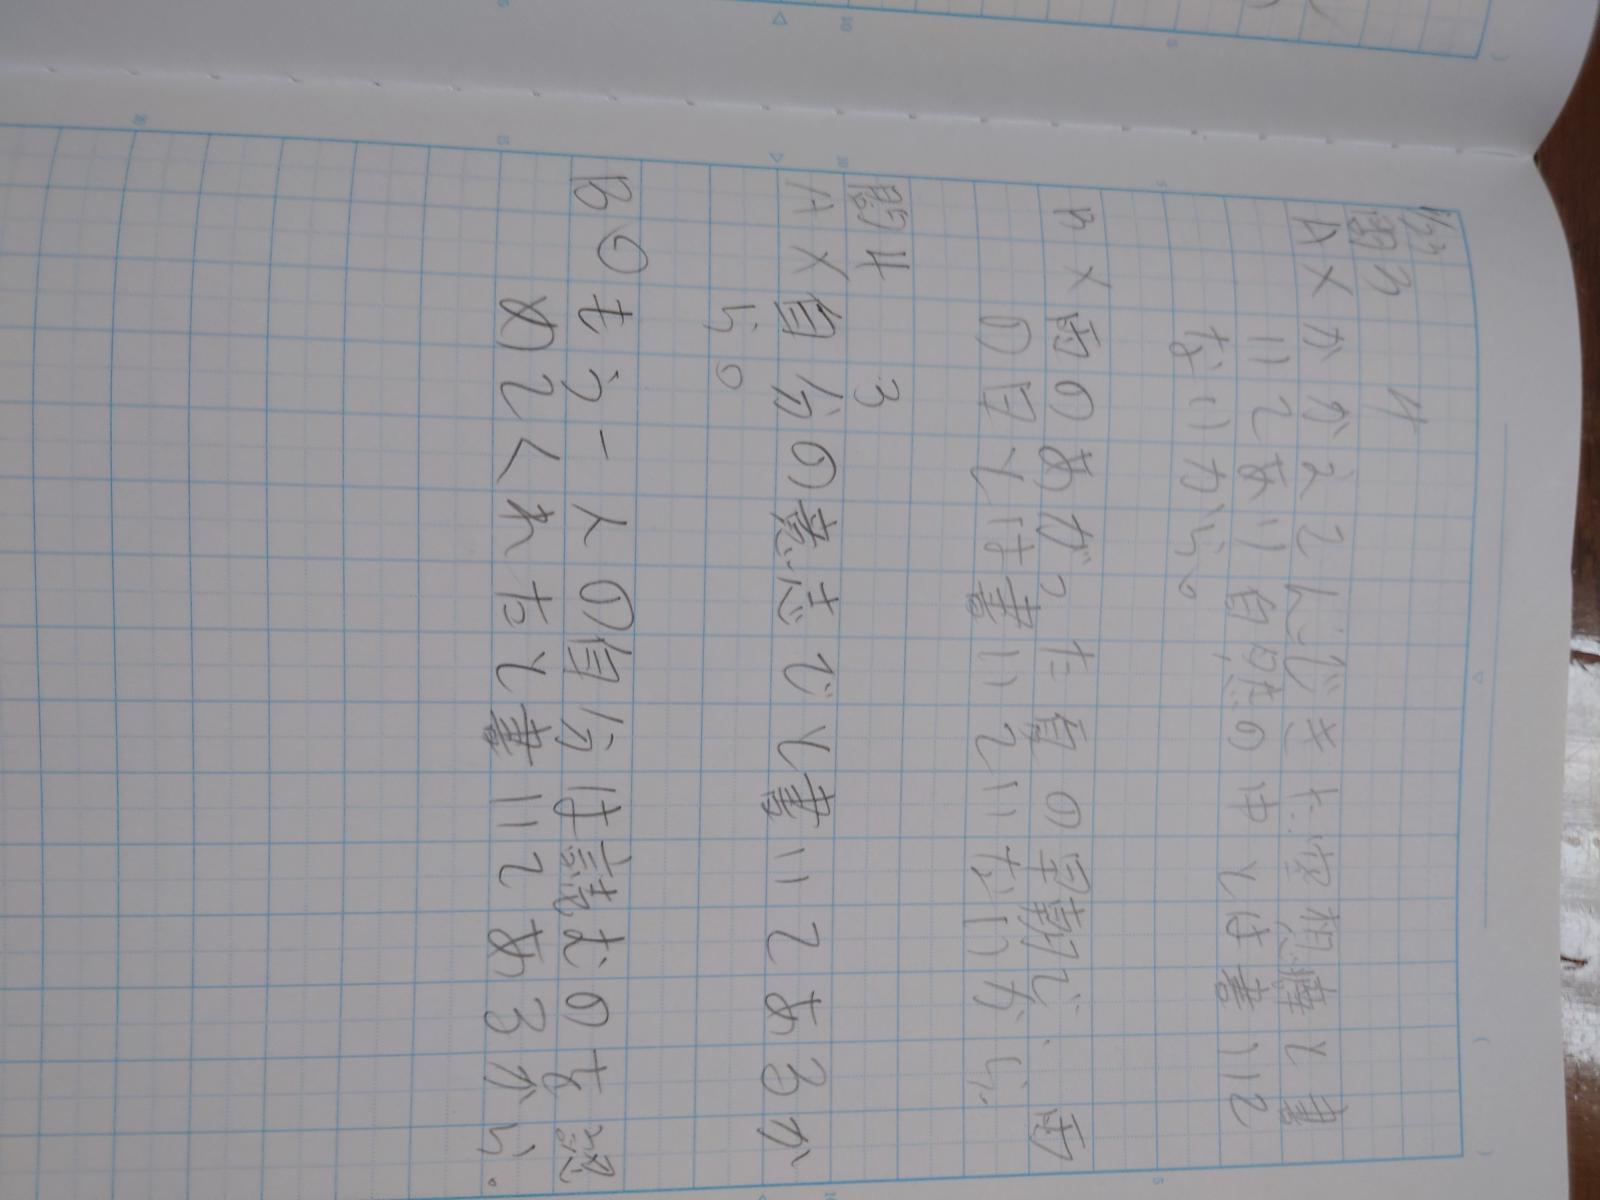 問3 4
A×かかえこんできた空想癖と書
いてあり自然の中とは書いて
ないから。
×雨のあがった夏の早朝で、雨
の日とは書いていないから、
問4 3
A×自分の意志でと書いてあるか
ら。
B○もう一人の自分は読むのを認
めてくれたと書いてあるから.